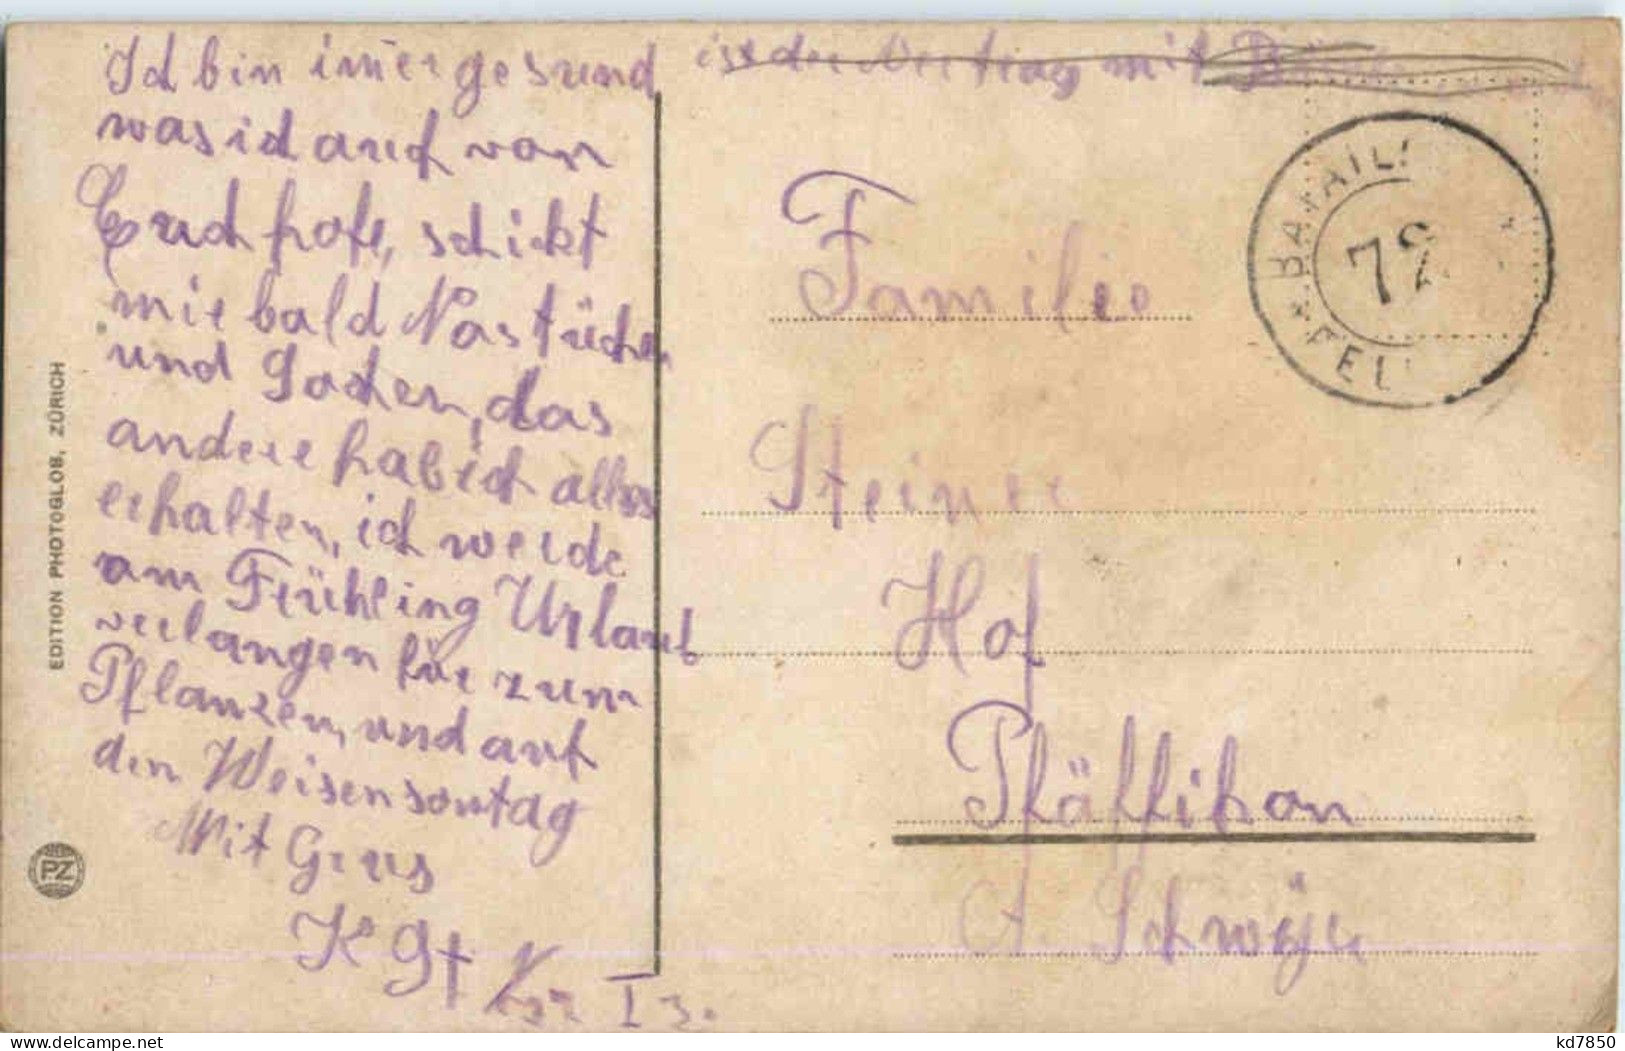 Ich bin imer gesund
was ich auch von
Euch hofe, schickt
mir bald Nastücher
und Socken, das
andere hab ich alles
erhalten, ich werde
am Frühling Urlaub
verlangen für zum
Pflanzen, und auf
den Weisensontag
Mit Grus
K St
I 3.
ist der Vertrag mit
BATAILL
72
FEL
Familie
Steiner
Hof
Pfäffikon
Schwÿz
EDITION PHOTOGLOB, ZÜRICH
PZ
kd7850